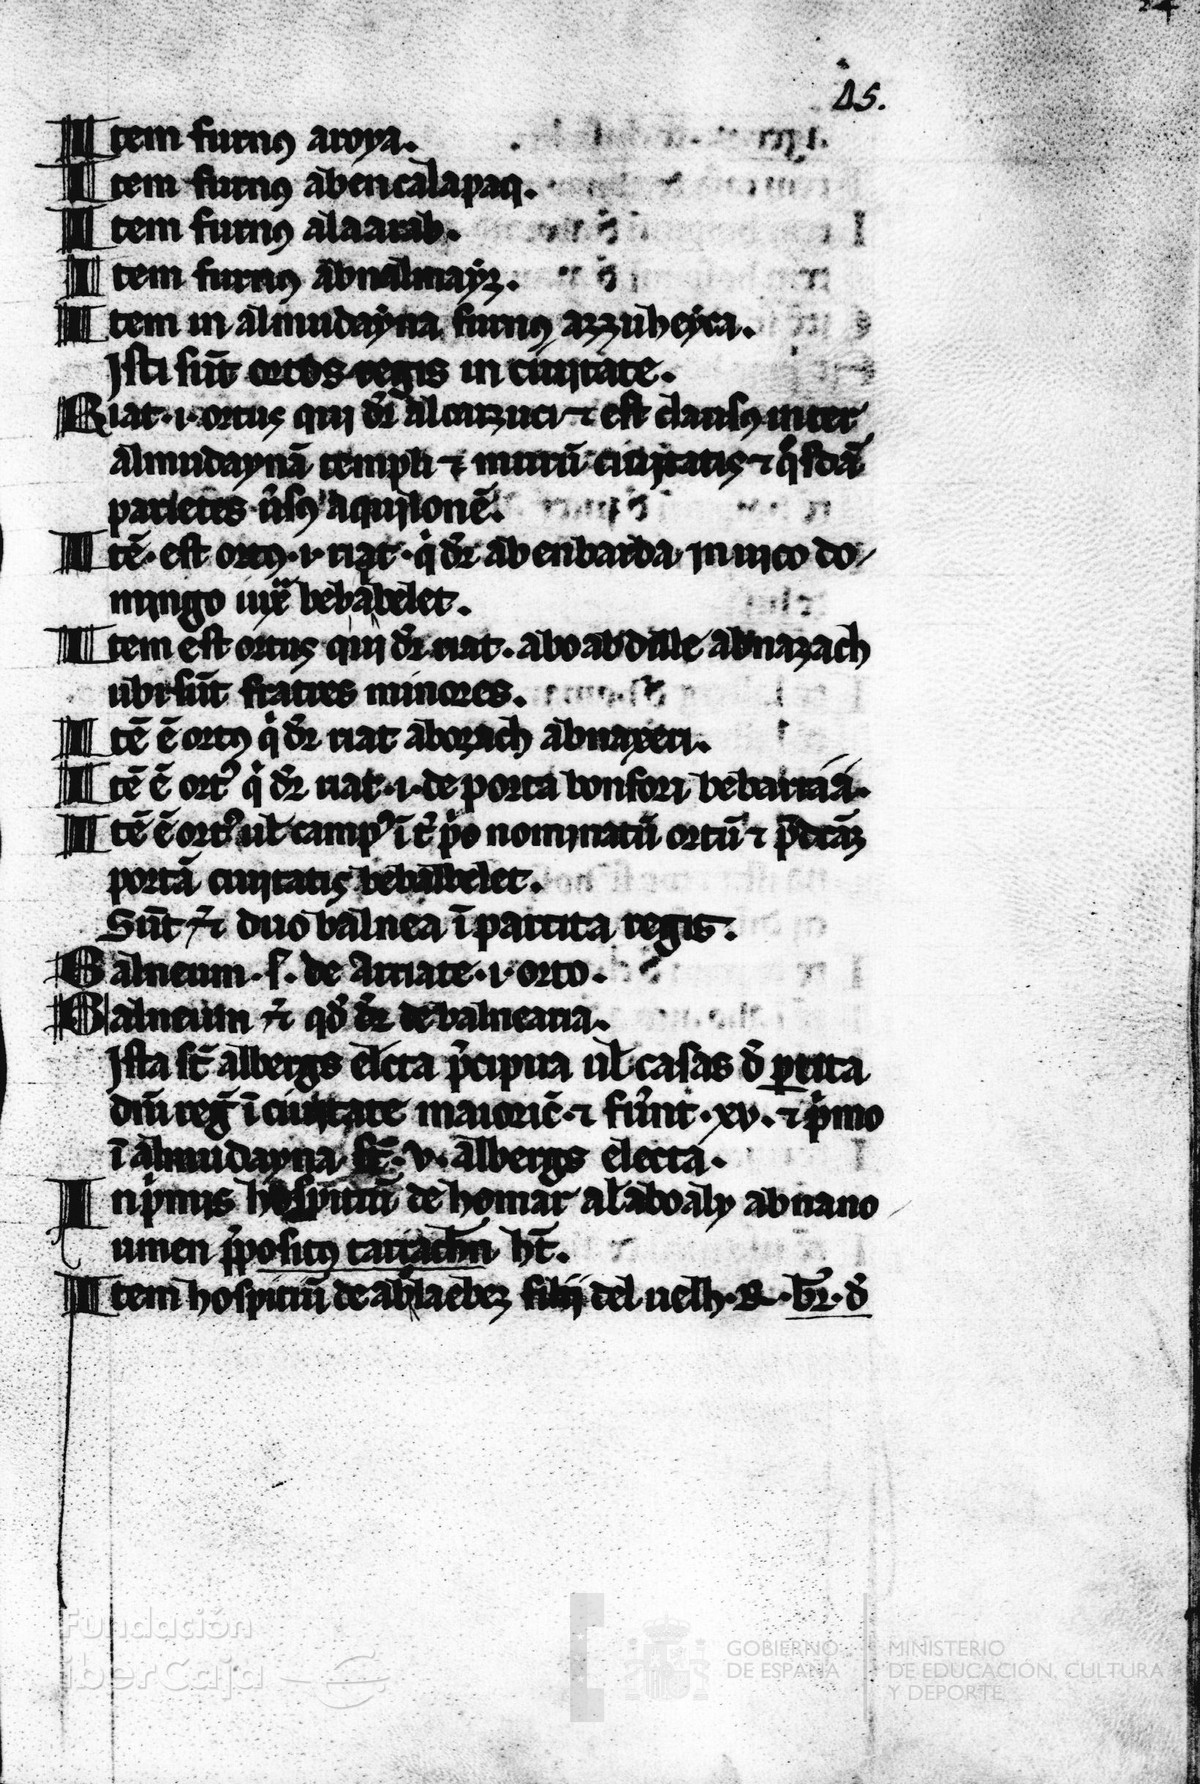 24
25.
Item furnꝯ aroya.
Item furnꝯ abencalapaq.
Item furnꝯ alaarab.
Item furnꝯ abnalmaýz.
Item in almudaýna furnꝯ azzuheyra.
Isti sūt ortos regis in ciuitate.
Riat·i·ortus qui dr̄ alcuzuci ⁊ est clausꝯ inter
almudaynā templi ⁊ murū ciuitatis ⁊ q̓sdā
parietes ūsꝯ aquilonē.
Itē·est ortꝯ·i·riat·q̇ dr̄ abenbarda in uico do
mingo iux̄ bebabelet.
Item est ortus qui dr̄ riat·aboabdille abnazach
ubi sūt fratres minores.
Itē ē ortꝯ q̇ dr̄ riat aborach abnaxeri.
Itē ē ortꝰ q̇ dr̄ riat·i·de porta bonfori bebartiā.
Itē ē ortꝰ ul̄ campꝰ ī t̓ p̓o nominatū ortū ⁊ p̄dcāz
portā ciuitatis bebalbelet.
Sūt ⁊̄ duo balnea ī partita regis.
Balneum·s̄·de arriate·i·orto.
Balneum ⁊̄ qd̄ dr̄ de balnearia.
Ista st̄ albergs elcta p̓cipua ul̄ casas d̄ ꝑtita
dn̄i reḡ ī ciuitate maioric̄·⁊ fūnt·xv·⁊ p̓mo
ī almudayna st̄·v·albergs electa.
In p̓mis hospitiū de homar al aboaly abnano
umen p̄positꝯ tarrachn̄ ht̄.
Item hospitiū de ablaebez filij del uelh·R·br̄·d̄
Fundación
iberCaja
GOBIERNO
DE ESPAÑA
MINISTERIO
DE EDUCACIÓN, CULTURA
Y DEPORTE